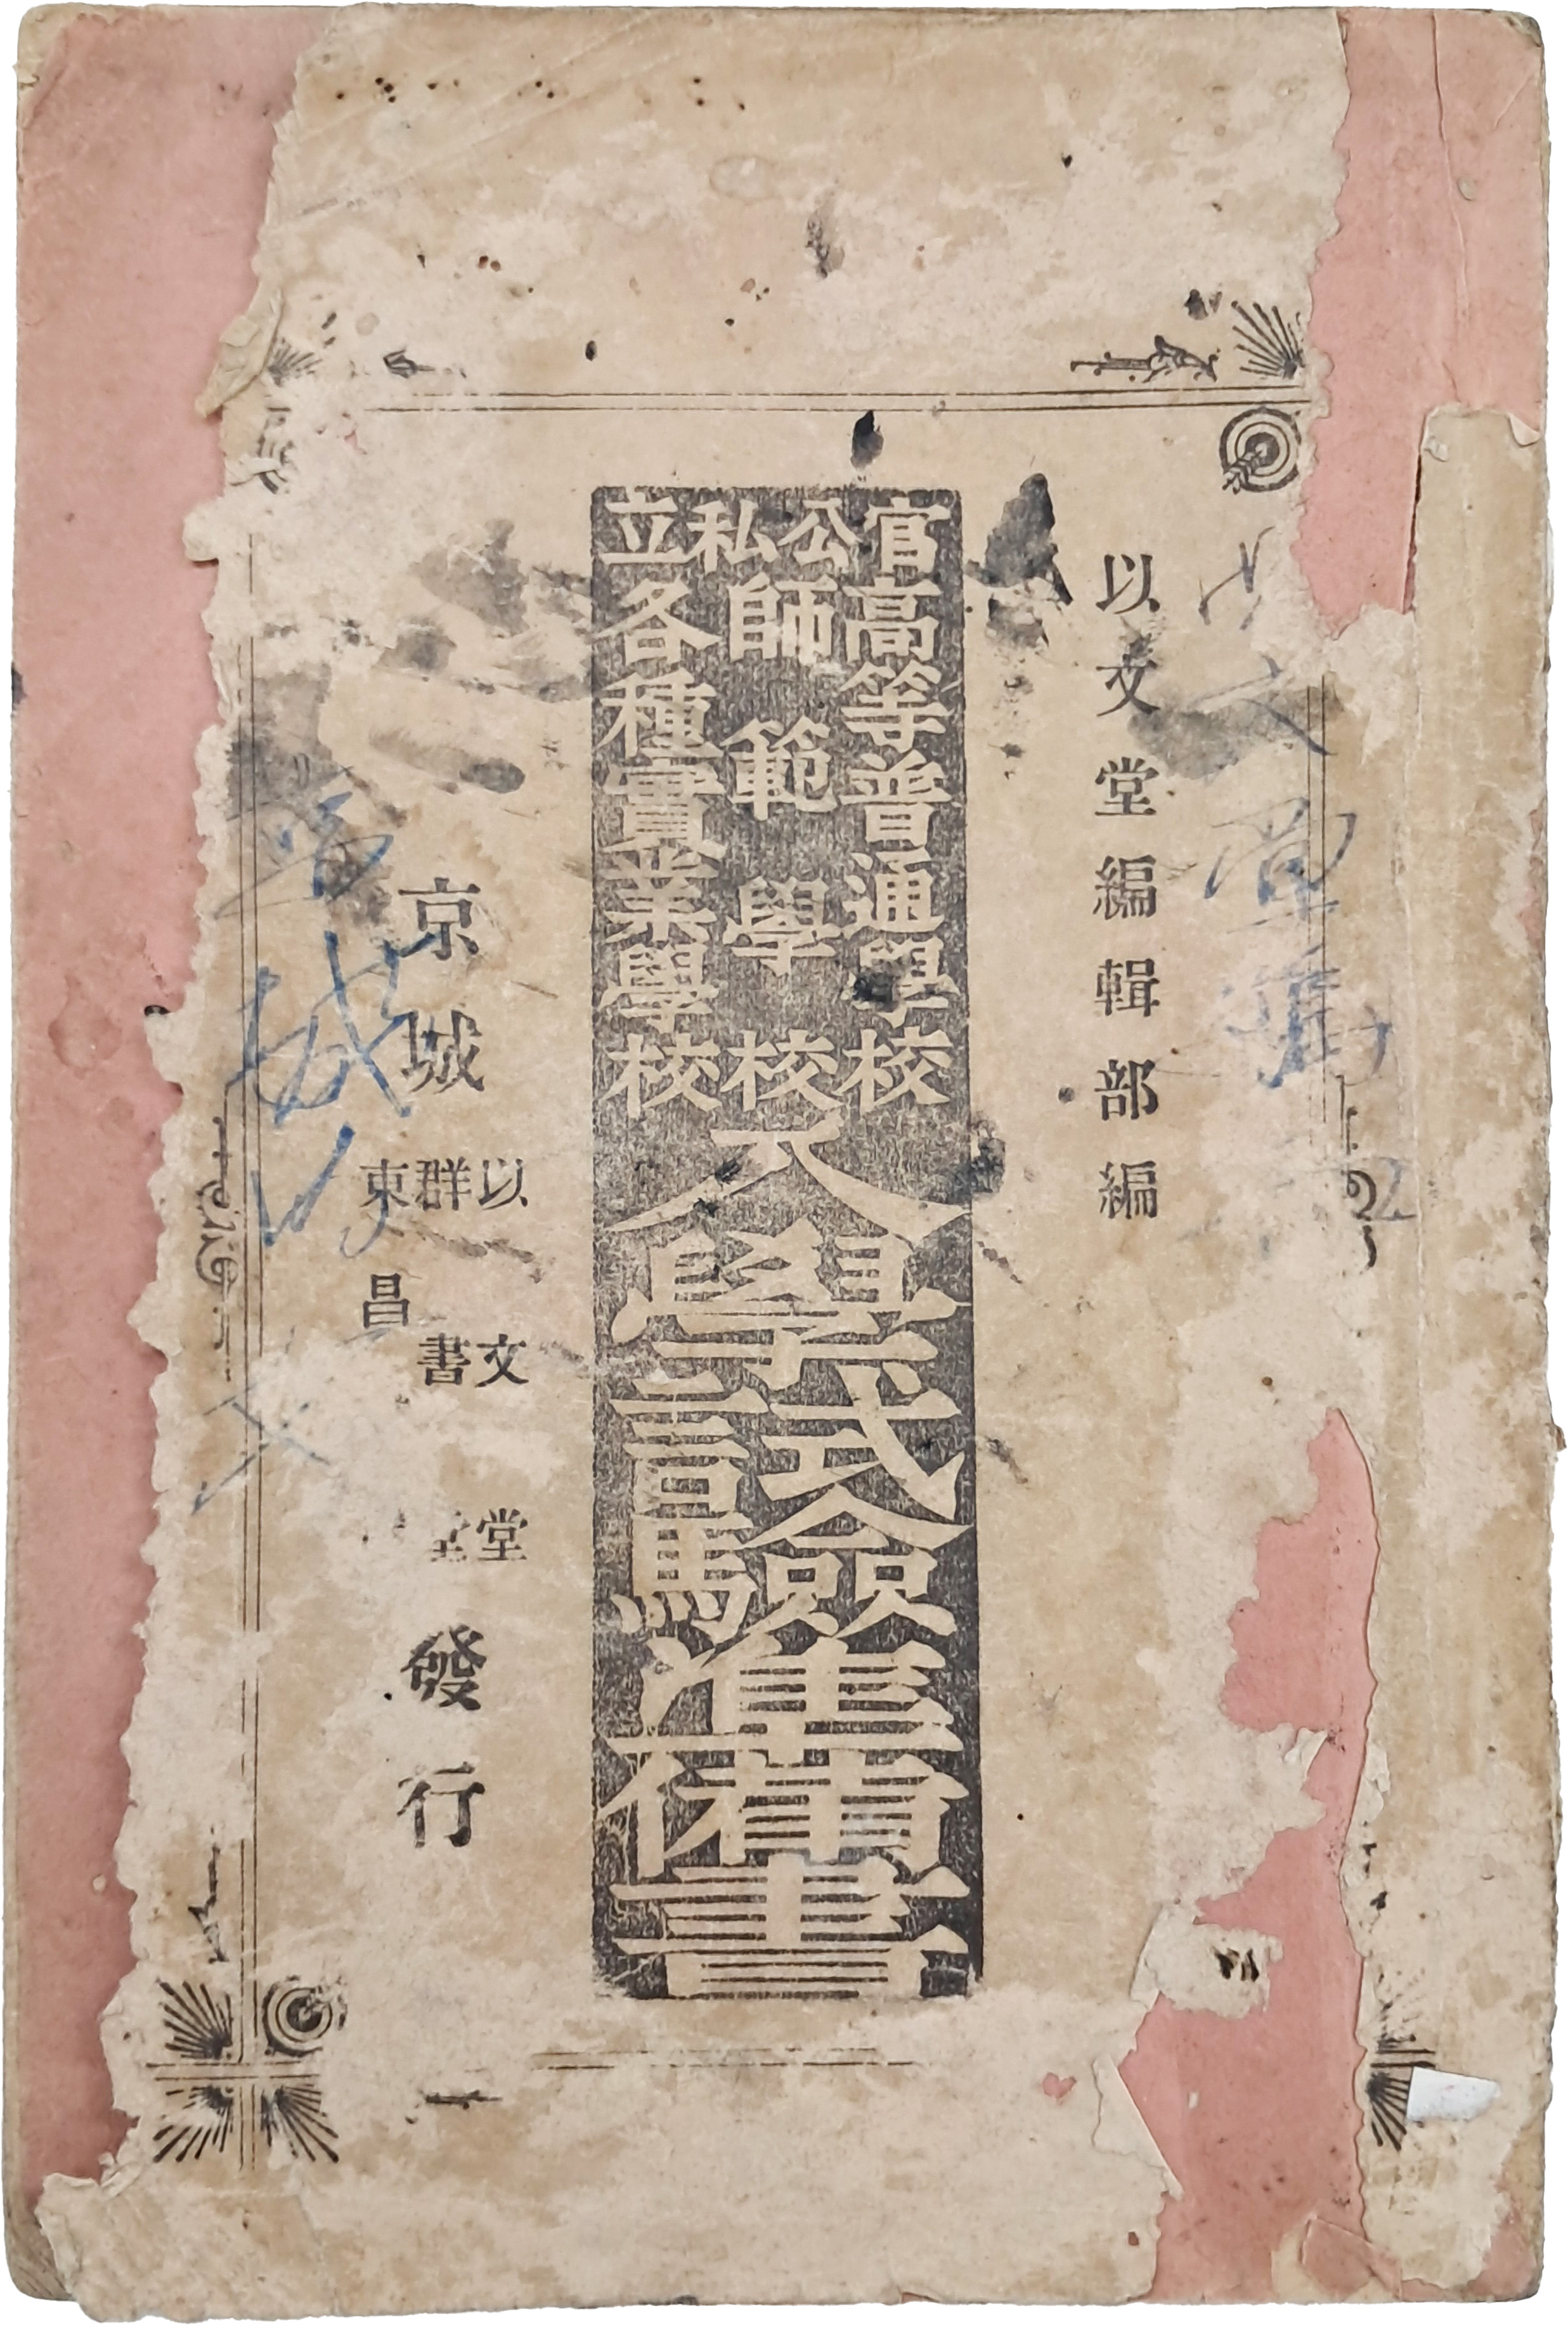 以文堂編輯部編
官公私立
高等普通學校
師範學校
各種實業學校
入學試驗準備書
京城
以文堂
群書堂
東昌
發行